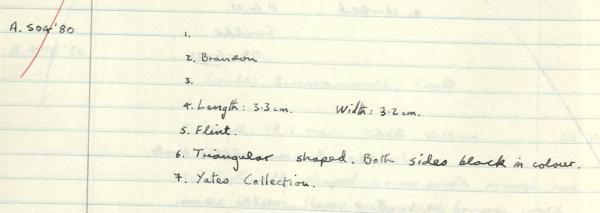 A. 504'80
1.
2. Brandon
3.
4. Length: 3.3 cm. Width: 3.2 cm.
5. Flint.
6. Triangular shaped. Both sides black in colour.
7. Yates Collection.